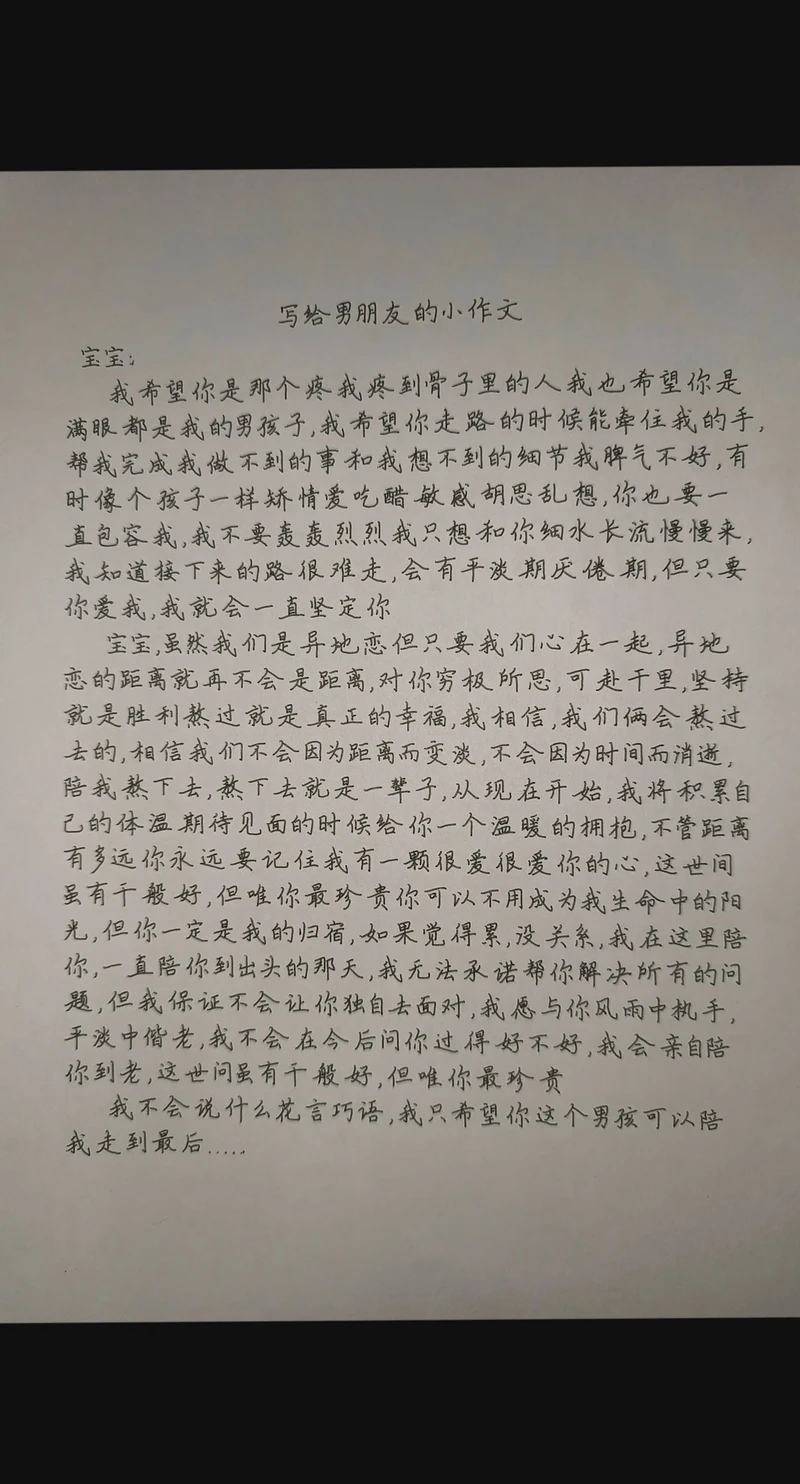 写给男朋友的小作文
宝宝:
我希望你是那个疼我疼到骨子里的人我也希望你是
满眼都是我的男孩子,我希望你走路的时候能牵住我的手,
帮我完成我做不到的事和我想不到的细节我脾气不好,有
时像个孩子一样矫情爱吃醋敏感胡思乱想,你也要一
直包容我,我不要轰轰烈烈我只想和你细水长流慢慢来,
我知道接下来的路很难走,会有平淡期厌倦期,但只要
你爱我,我就会一直坚定你
宝宝,虽然我们是异地恋但只要我们心在一起,异地
恋的距离就再不会是距离,对你穷极所思,可赴千里,坚持
就是胜利熬过就是真正的幸福,我相信,我们俩会熬过
去的,相信我们不会因为距离而变淡,不会因为时间而消逝,
陪我熬下去,熬下去就是一辈子,从现在开始,我将积累自
己的体温期待见面的时候给你一个温暖的拥抱,不管距离
有多远你永远要记住我有一颗很爱很爱你的心,这世间
虽有千般好,但唯你最珍贵你可以不用成为我生命中的阳
光,但你一定是我的归宿,如果觉得累,没关系,我在这里陪
你,一直陪你到出头的那天,我无法承诺帮你解决所有的问
题,但我保证不会让你独自去面对,我愿与你风雨中执手,
平淡中偕老,我不会在今后问你过得好不好,我会亲自陪
你到老,这世间虽有千般好,但唯你最珍贵
我不会说什么花言巧语,我只希望你这个男孩可以陪
我走到最后.....